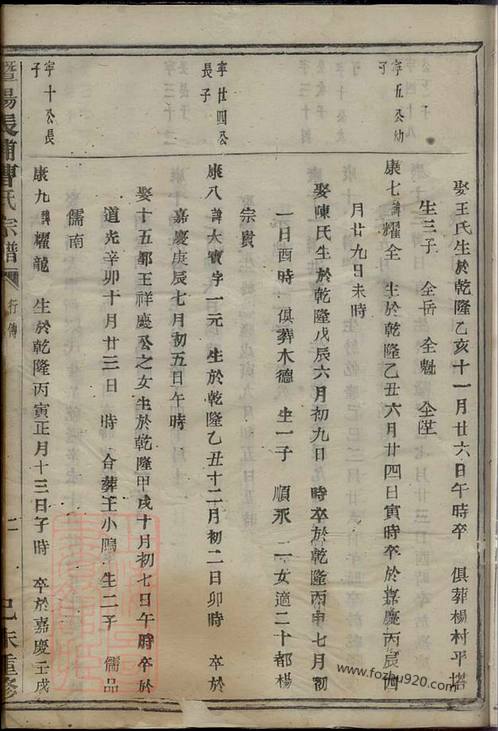 娶王氏生於乾隆乙亥十一月廿六日午時卒 俱葬楊村平塔
生三子 全岳 全魁 全陞
寧五公幼子
康七諱耀全 生於乾隆乙丑六月廿四日寅時卒於嘉慶丙辰四
月廿九日未時
娶陳氏生於乾隆戊辰六月初九日 時卒於乾隆丙申七月初
一日酉時 俱葬木德 生一子 順承 一女適二十都楊
宗賢
寧廿四公長子
康八諱大寶字一元 生於乾隆乙丑十二月初二日卯時 卒於
嘉慶庚辰七月初五日午時
娶十五都王祥慶公之女生於乾隆甲戌十月初七日午時卒於
道光辛卯十月廿三日 時 合葬王小塢 生二子 儒品
儒南
寧十公長子
康九諱耀龍 生於乾隆丙寅正月十三日子時 卒於嘉慶壬戌
暨陽長浦曹氏宗譜 行傳 己未重修
www.fozhu920.com